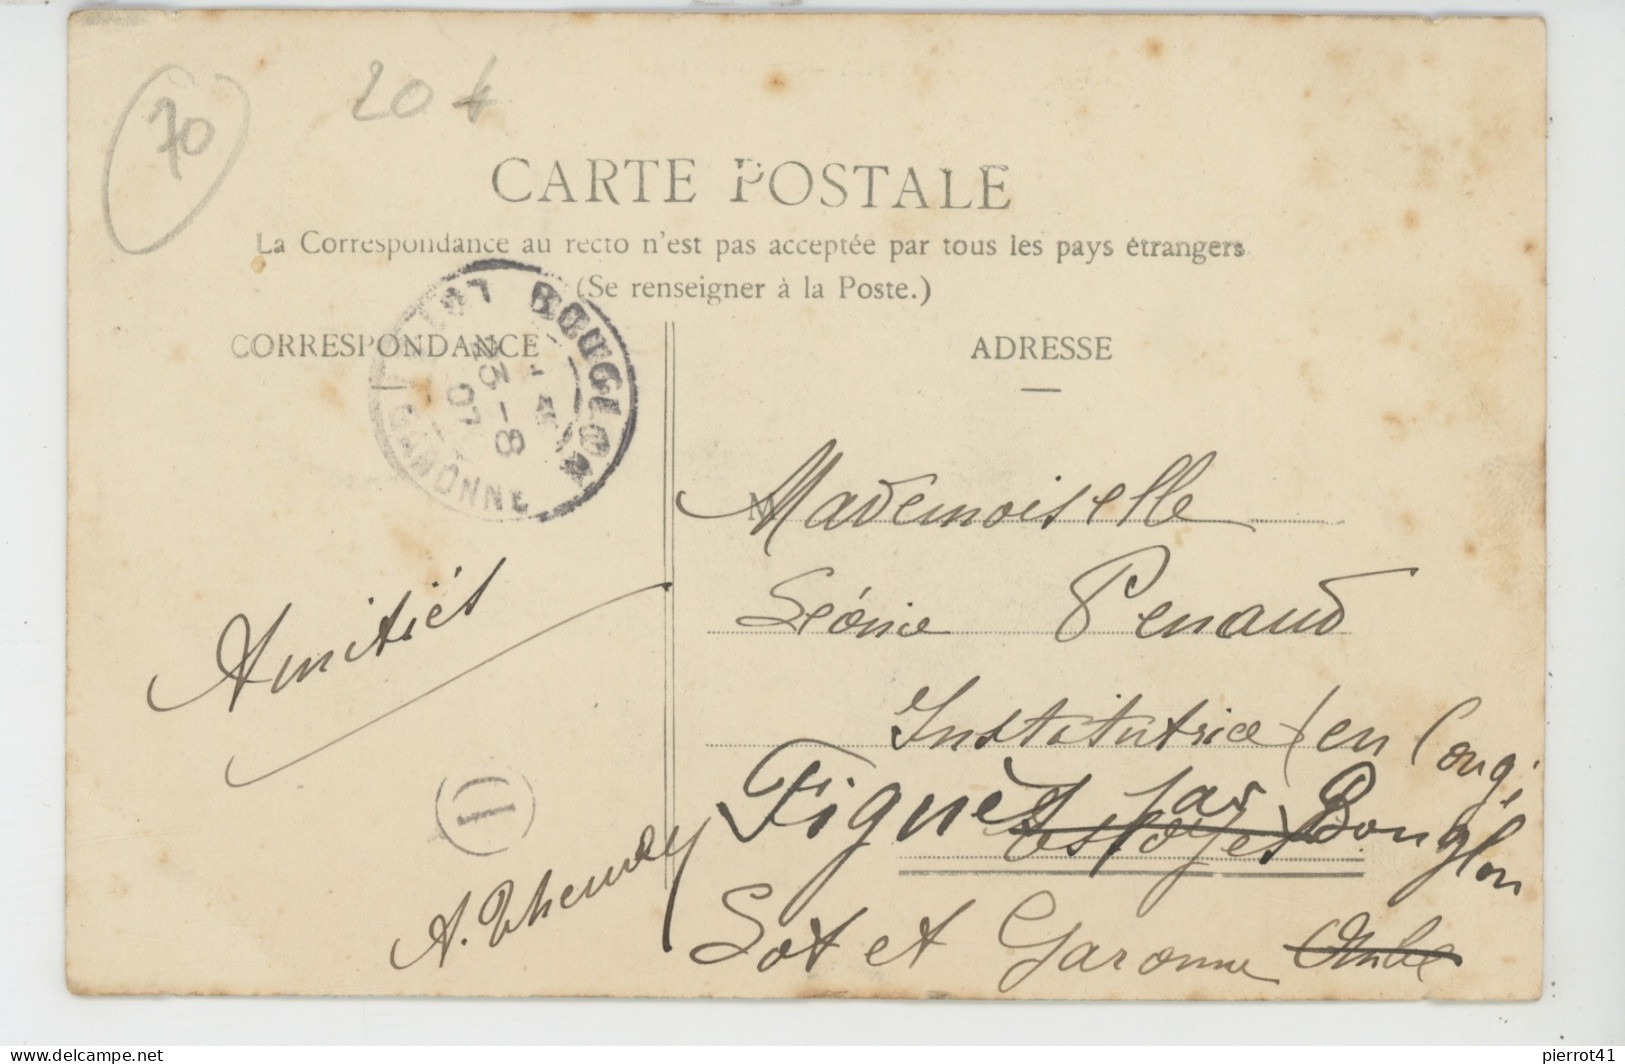 70
20
CARTE POSTALE
La Correspondance au recto n'est pas acceptée par tous les pays étrangers
(Se renseigner à la Poste.)
CORRESPONDANCE
BOUGLON
LOT
GARONNE
23 - 8
07
ADRESSE
M
Mademoiselle
Léonie Penaud
Institutrice en Congé
Figuès par Bouglon
Lot et Garonne Aube
Amitiés
A. Thenney
D
delcampe.net
pierrot41